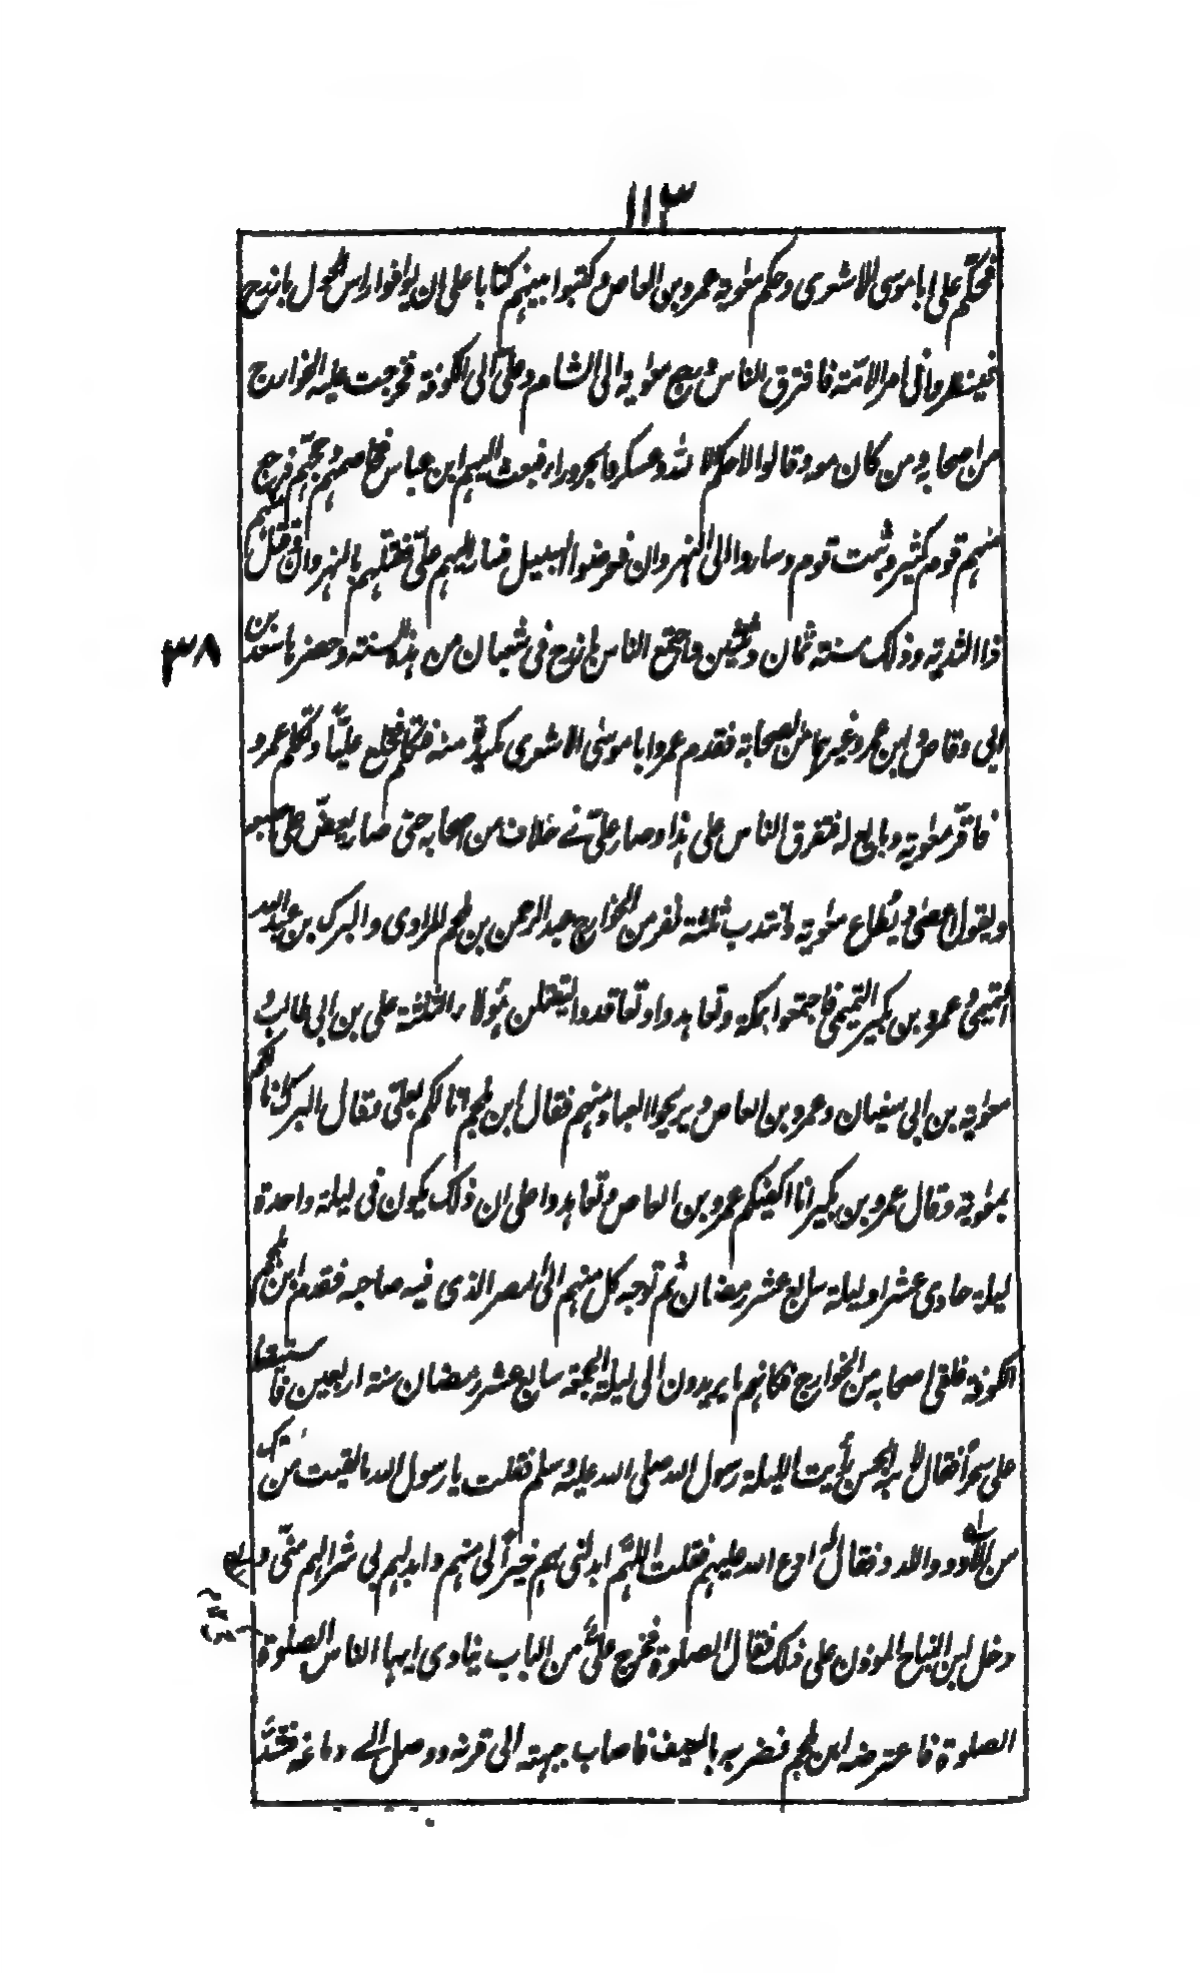 ١١٣
فحكّم علي ابا موسى الاشعرى وحكم معوية عمرو بن العاص وكتبوا بينهم كتابا على ان يوافوا راس الحول باذرح
فينظروا فى امر الامّة فافترق الناس ورجع معوية الى الشام وعلىّ الى الكوفة فخرجت عليه الخوارج
من اصحابه ومن كان معه وقالوا لا حكم الا لله وعسكروا بحروراء فبعث اليهم ابن عباس فخاصمهم وحجّهم فرجع
منهم قوم كثير وثبت قوم وساروا الى النهروان فعرضوا السبيل فسار اليهم علىّ فقتلهم بالنهروان وقتل منهم
ذا الثدية وذلك سنة ثمان وثلثين واجتمع الناس باذرح فى شعبان من هذه السنة وحضرها سعد بن
٣٨
ابى وقاص وابن عمر وغيرهما من الصحابة فقدم عمرو ابا موسى الاشعرى مكيدة منه فتكلم فخلع عليّا وتكلم عمرو
فاقرّ معوية وبايع له فتفرق الناس على هذا وصار علىّ فے خلاف من اصحابه حتى صار يعضّ على اصبعه
ويقول اعصى ويُطاع معوية وانتدب ثلثة نفر من الخوارج عبد الرحمن بن ملجم المرادى والبرك بن عبد الله
التميمى وعمرو بن بكير التميمى فاجتمعوا بمكة وتعاهدوا وتعاقدوا ليقتلن هؤلاء الثلثة على بن ابى طالب و
معوية بن ابى سفيان وعمرو بن العاص ويريحوا العباد منهم فقال ابن ملجم انا لكم بعلىّ وقال البرك انا لكم
بمعوية وقال عمرو بن بكير انا اكفيكم عمرو بن العاص وتعاهدوا على ان ذلك يكون فى ليلة واحدة
ليلة حادى عشر او ليلة سابع عشر رمضان ثم توجه كل منهم الى المصر الذى فيه صاحبه فقدم ابن ملجم
الكوفة فلقى اصحابه من الخوارج فكاتمهم ما يريدون الى ليلة الجمعة سابع عشر رمضان سنة اربعين فاستيقظ
على سحرا فقال لابنه الحسن رأيت الليلة رسول الله صلى الله عليه وسلم فقلت يا رسول الله ما لقيت من امتك
من الأود واللدد فقال لى ادع الله عليهم فقلت اللهمّ ابدلنى بهم خيرًا لى منهم وابدلهم بى شرا لهم منّى و
دخل ابن النباح المؤذن على ذلك فقال الصلوة فخرج علىّ من الباب ينادى ايها الناس الصلوة
الصلوة فاعترضه ابن ملجم فضربه بالسيف فاصاب جبهته الى قرنه ووصل الے دماغه فشدّ